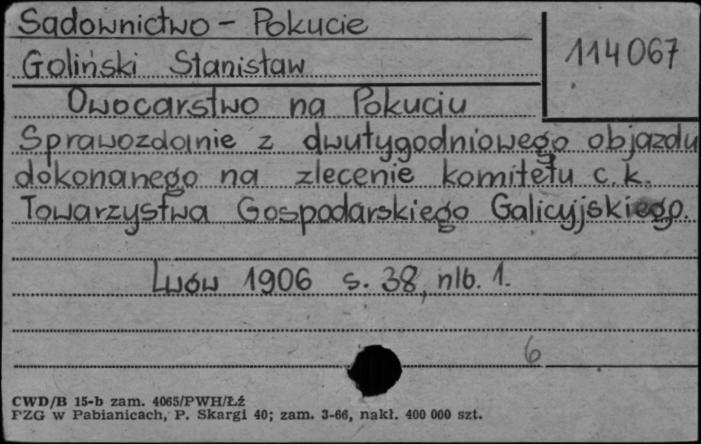 Sadownictwo - Pokucie
114067
Goliński Stanisław
Owocarstwo na Pokuciu
Sprawozdanie z dwutygodniowego objazdu
dokonanego na zlecenie komitetu c.k.
Towarzystwa Gospodarskiego Galicyjskiego.
Lwów 1906 s. 38, nlb. 1.
6
CWD/B 15-b zam. 4065/PWH/Łź
PZG w Pabianicach, P. Skargi 40; zam. 3-66, nakł. 400 000 szt.